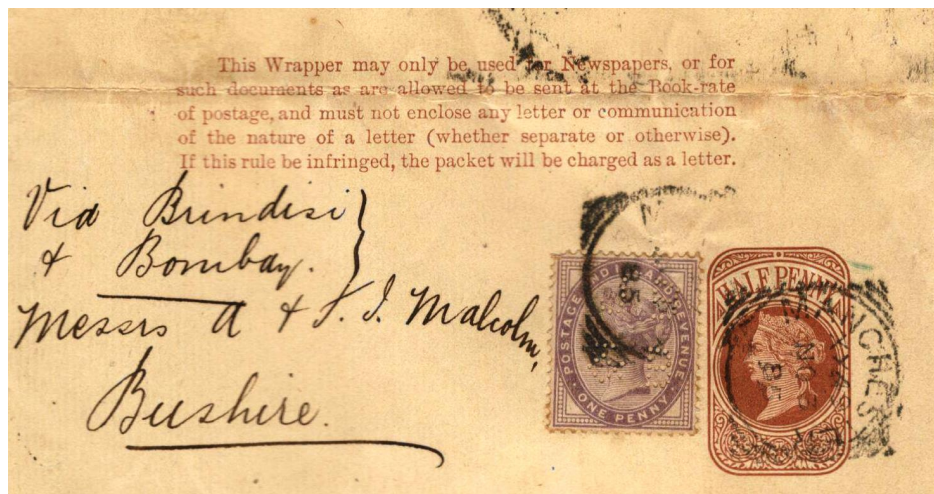 This Wrapper may only be used for Newspapers, or for
such documents as are allowed to be sent at the Book-rate
of postage, and must not enclose any letter or communication
of the nature of a letter (whether separate or otherwise).
If this rule be infringed, the packet will be charged as a letter.
Via Brindisi
& Bombay.
Messrs A & T. J. Malcolm,
Bushire.
POSTAGE AND INLAND REVENUE
ONE PENNY
85
HALF PENNY
MANCHESTER
NO